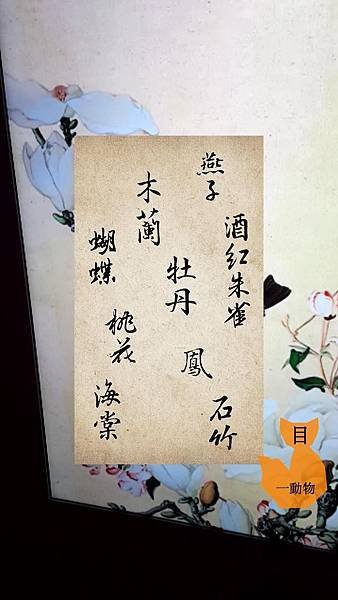 燕子
酒紅朱雀
木蘭
牡丹
蝴蝶
鳳
桃花
石竹
海棠
目
一動物